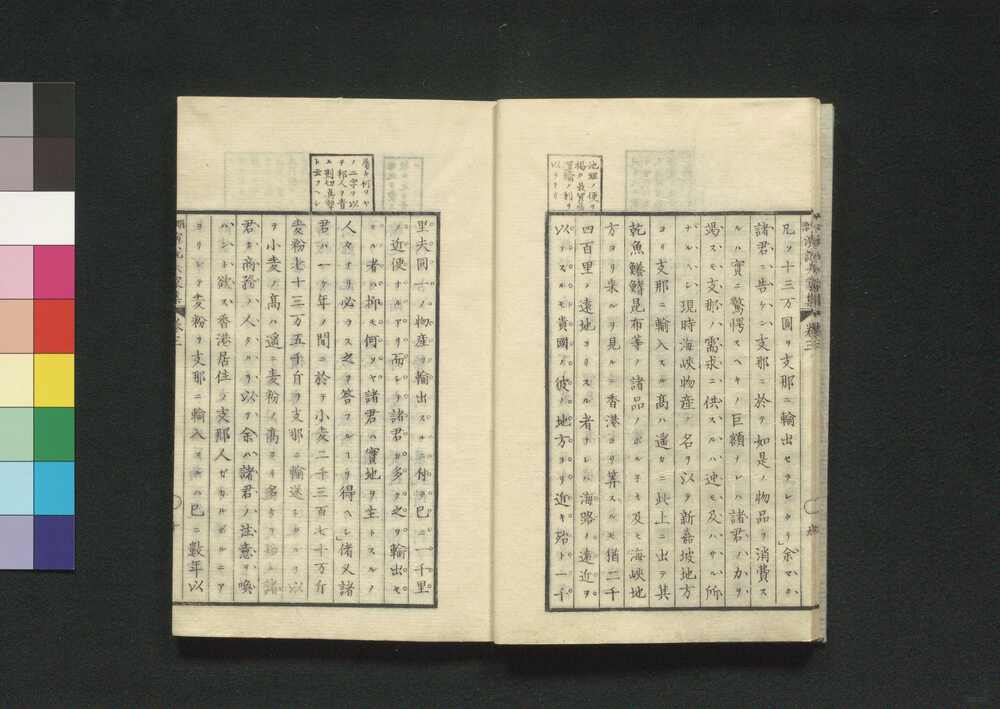 凡ソ十三万圓ヲ支那ニ輸出セラレタリ」余マタ
諸君ニ告ケン支那ニ於テ如是ノ物品ヲ消費ス
ルハ實ニ驚愕スヘキノ巨額ナレハ諸君ノ力ヲ
竭スモ支那ノ需求ニ供スルハ迚モ及ハサル所
ナルヘシ現時海峽物産ノ名ヲ以テ新嘉坡地方
ヨリ支那ニ輸入スル高ハ遥カニ此上ニ出テ其
乾魚鱶鰭昆布等ノ諸品ノボルネヲ及ヒ海峽地
方ヨリ来ルヲ見ルニ香港ヨリ算スルモ猶二千
四百里ノ遠地ヨリスル者ナレハ海路ノ遠近ヲ
以テスルモ貴國ノ彼ノ地方ヨリ近キ殆ト一千
地理ノ便ヲ
以テナリ
里夫同一ノ物産ヲ輸出スルニ付テ已ニ一千里
ノ近便ナルアリ而シテ諸君カ多ク之ヲ輸出セ
サル者ハ抑モ何ソヤ諸君ハ實地ヲ主トスルノ
人々ナリ必ラス之ヲ答フルヲ得ヘシ」偖又諸
君ハ一ケ年ノ間ニ於テ小麦二千三百七十万斤
麦粉七十三万五千自ヲ支那ニ輸送シタルヲ以
テ小麦ノ高ハ遥ニ麦粉ノ高ヨリ多キヲ
君ハ商務ノ人タルヲ以テ余ハ諸君ノ注意ヲ喚
ハント欲ス香港居住ノ支那人ガカルボルニア
ヨリシテ麦粉ヲ支那ニ輸入スルハ已ニ數年以
抑モ何ソヤ
ノ二字ヲ以
テ邦人ヲ責
ム剴切萬聲
ト云フヘシ
卷三